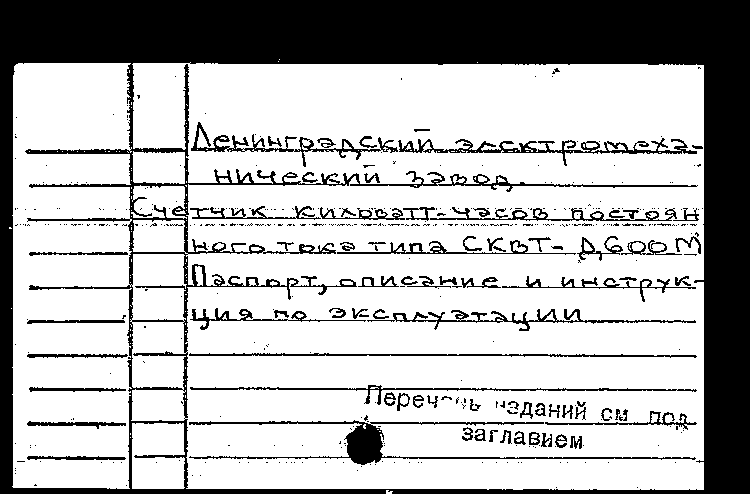 Ленинградский электромеха-
нический завод.
Счетчик киловатт-часов постоян
ного тока типа СКВТ-Д600М
Паспорт, описание и инструк-
ция по эксплуатации
Перечень изданий см под
заглавием